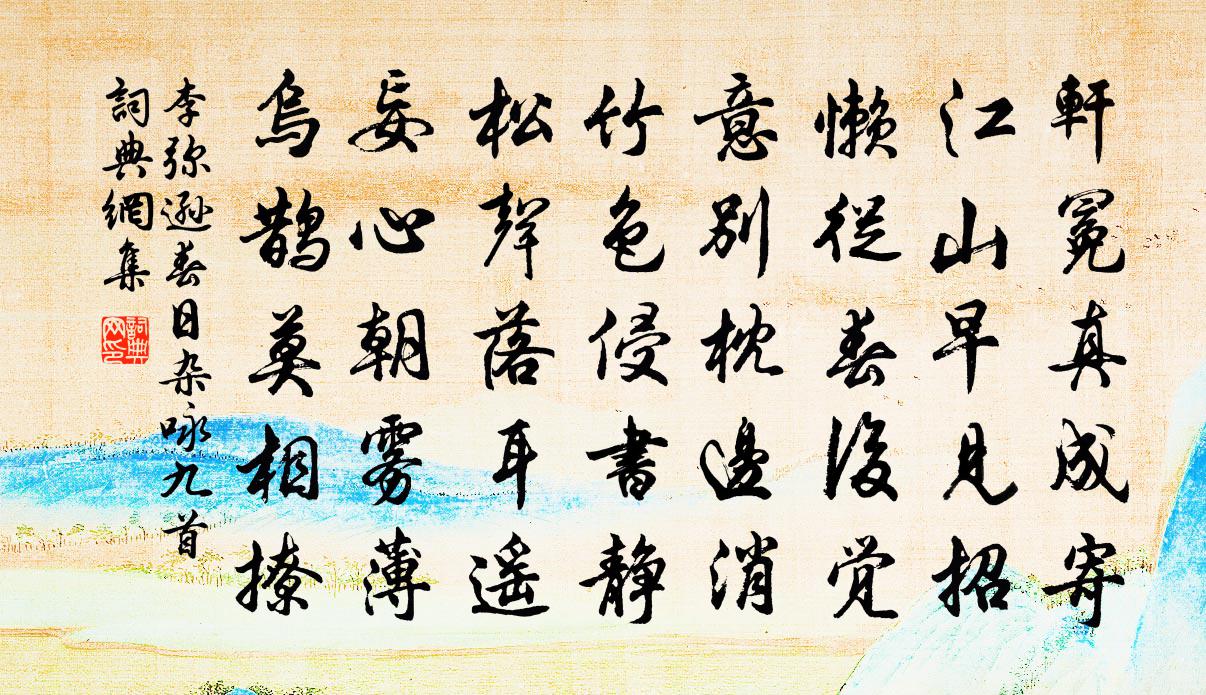 軒冕真成寄
江山早見招
懶從春後覺
意別枕邊消
竹色侵書靜
松聲落耳遥
妄心朝霧薄
烏鵲莫相撩
李弥遜春日杂咏九首
詞典網集
詞典
网印